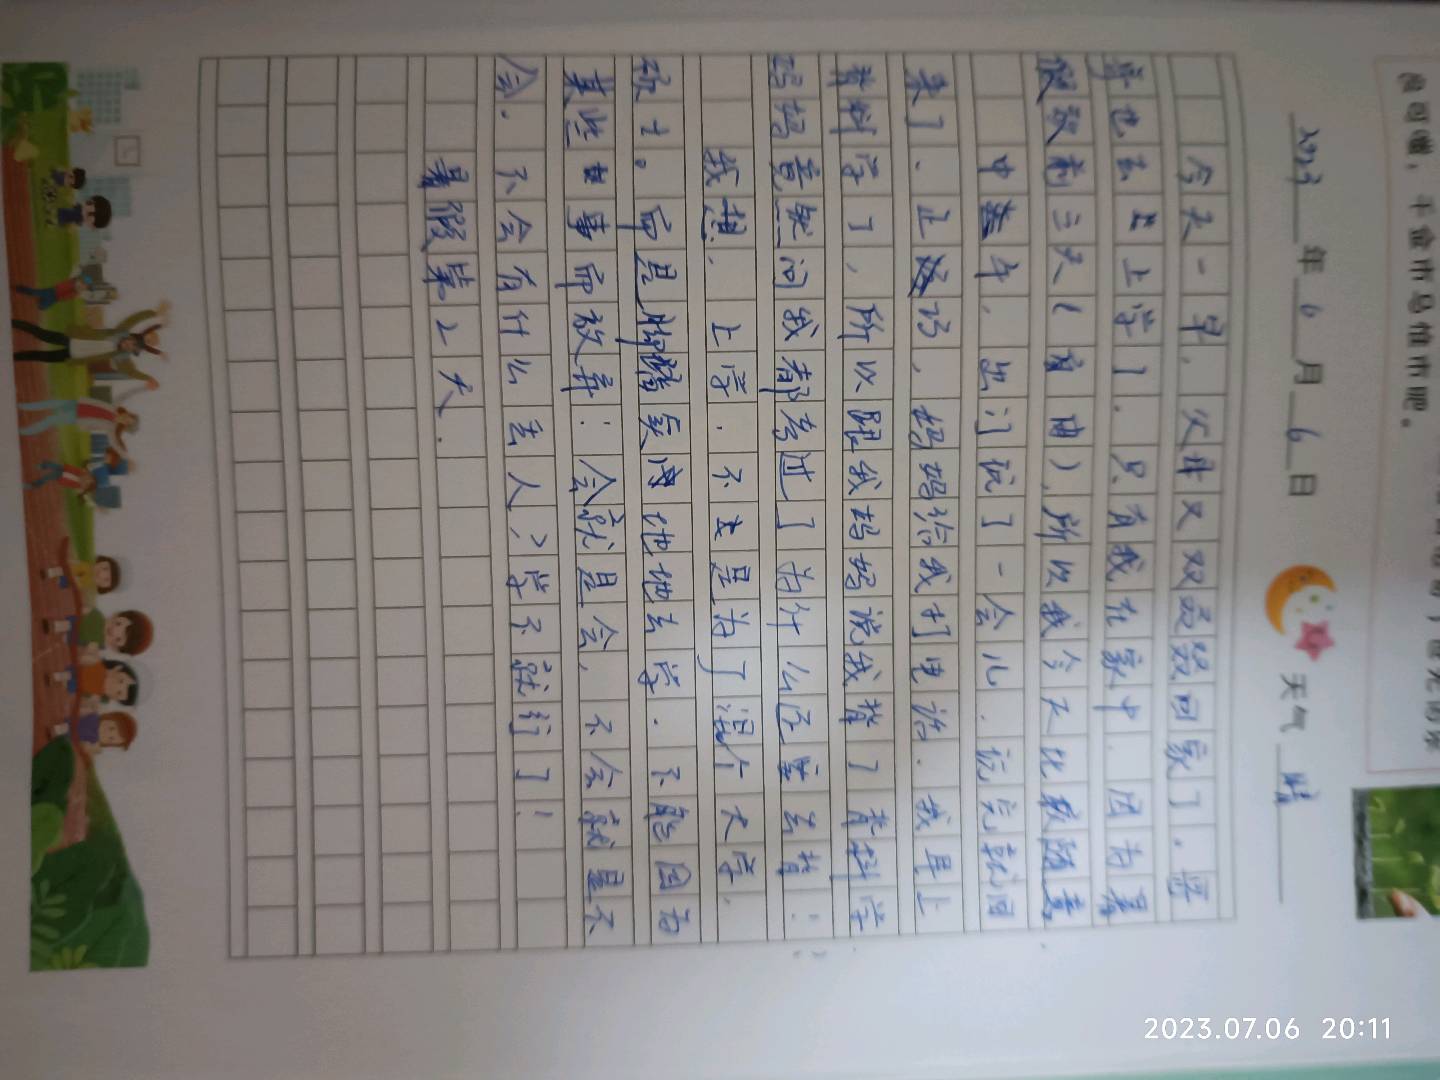 2023年6月6日 天气 晴
今天一早，父母又双叒叕回家了。哥
哥也去上学了．只有我在家中．因为暑
假放前三天(自由)，所以我今天比较随意
中午，出门玩了一会儿．玩完就回
来了．正巧，妈妈给我打电话．我早上
背科学了，所以跟我妈妈说我背了背科学
妈妈竟然问我都考过了为什么还要去背！
我想．上学．不是为了混个大学．
硕士。而是脚踏实地地去学．不能因为
某些事而放弃：会就是会，不会就是不
会．不会有什么丢人？学不就行了！
暑假第2天．
2023.07.06 20:11